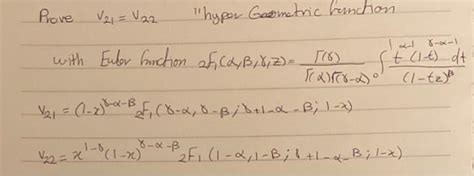 Prove V21 = V22 "hyper Geometric function
with Euler function 2F1(α,β,γ,z) = Γ(γ)/Γ(α)Γ(γ-α) ∫₀¹ t^(α-1) (1-t)^(γ-α-1) dt / (1-tz)^β
V21 = (1-x)^(γ-α-β) 2F1(γ-α, γ-β; γ+1-α-β; 1-x)
V22 = x^(1-γ) (1-x)^(γ-α-β) 2F1(1-α, 1-β; γ+1-α-β; 1-x)